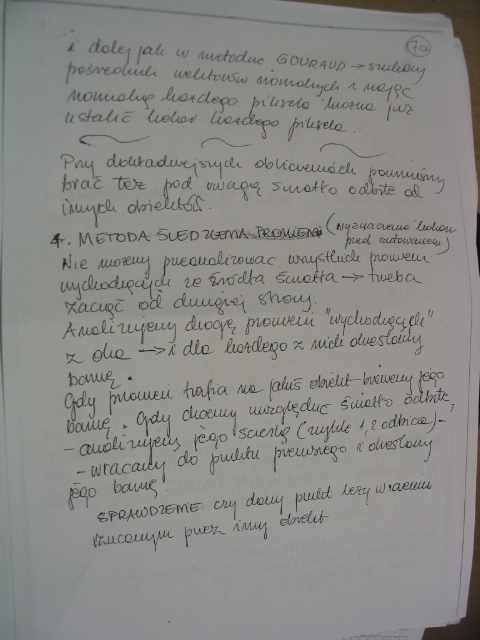 70
i dalej jak w metodzie GOURAUD → szukamy
pośrednich wektorów normalnych i mając
normalną każdego piksela można już
ustalić kolor każdego piksela.
Przy dokładniejszych obliczeniach powinniśmy
brać też pod uwagę światło odbite od
innych obiektów.
4. METODA ŚLEDZENIA PROMIENI (wyznaczanie koloru
przed rzutowaniem)
Nie możemy przeanalizować wszystkich promieni
wychodzących ze źródła światła → trzeba
zacząć od drugiej strony.
Analizujemy drogę promieni "wychodzących"
z oka → i dla każdego z nich określamy
barwę.
Gdy promień trafia na jakiś obiekt - bierzemy jego
barwę. Gdy chcemy uwzględnić światło odbite,
- analizujemy jego ścieżkę (zwykle 1, 2 odbicia) -
- wracamy do punktu pierwszego i określamy
jego barwę.
SPRAWDZENIE czy dany punkt leży w cieniu
rzucanym przez inny obiekt